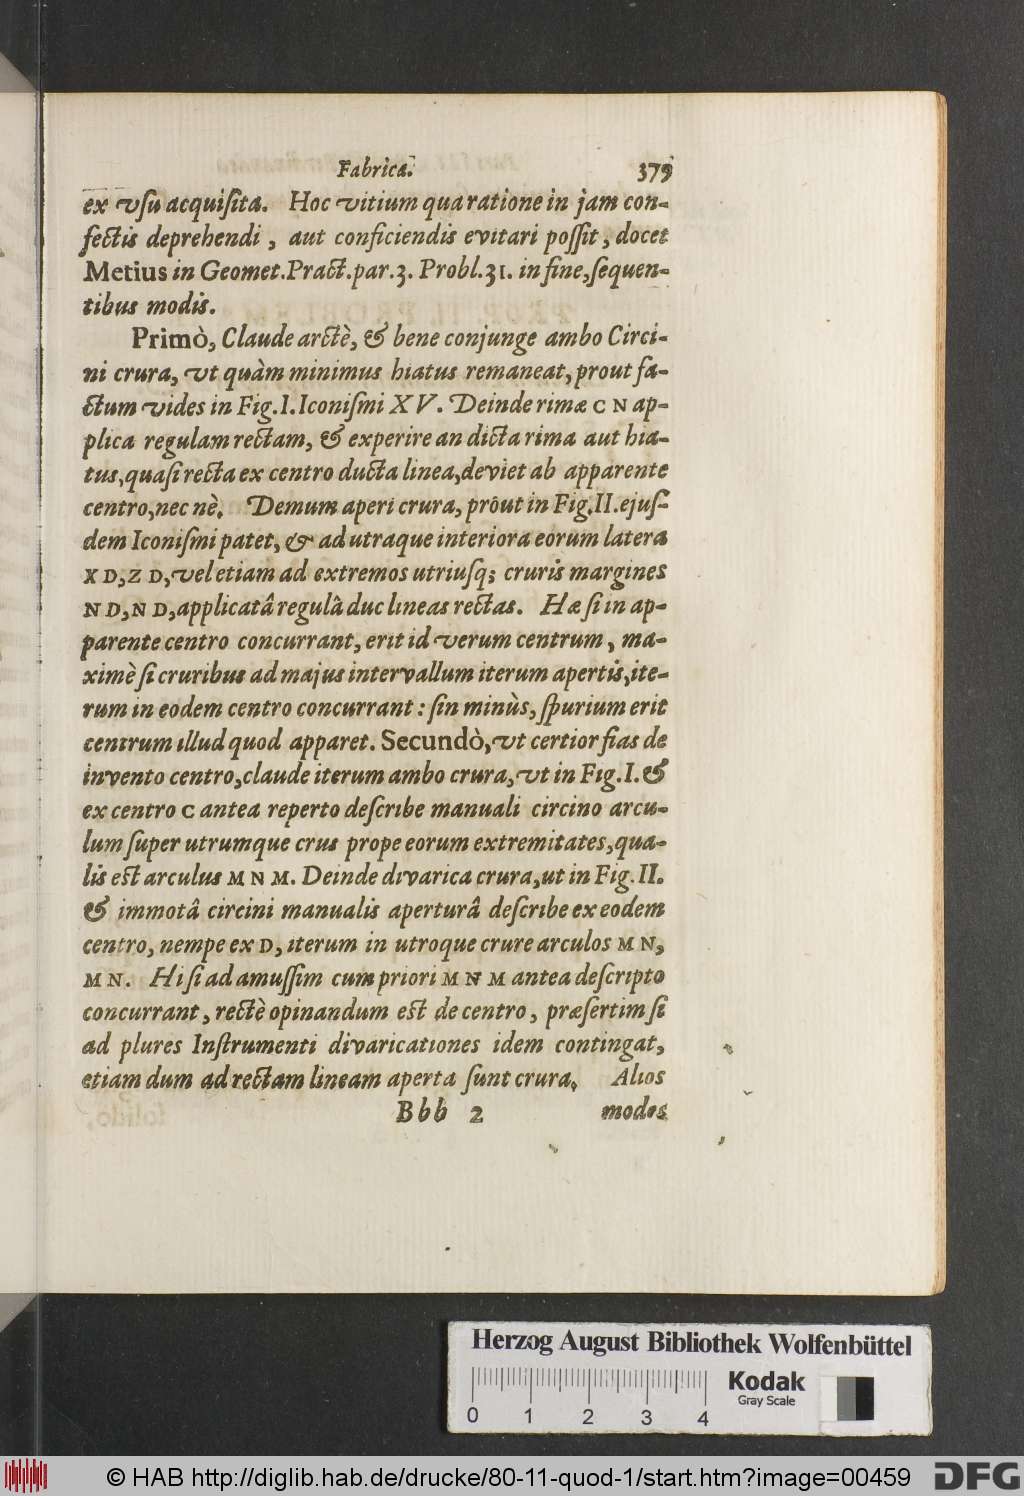 Fabrica. 379
ex vſu acquiſita. Hoc vitium qua ratione in jam con-
fectis deprehendi, aut conficiendis evitari poſſit, docet
Metius in Geomet. Pract. par. 3. Probl. 31. in fine, ſequen-
tibus modis.
Primò, Claude arctè, & bene conjunge ambo Circi-
ni crura, vt quàm minimus hiatus remaneat, prout fa-
ctum vides in Fig. I. Iconiſmi XV. Deinde rimæ C N ap-
plica regulam rectam, & experire an dicta rima aut hia-
tus, quaſi recta ex centro ducta linea, deviet ab apparente
centro, nec nè. Demum aperi crura, prôut in Fig. II. ejuſ-
dem Iconiſmi patet, & ad utraque interiora eorum latera
X D, Z D, vel etiam ad extremos utriuſq; cruris margines
N D, N D, applicatâ regulâ duc lineas rectas. Hæ ſi in ap-
parente centro concurrant, erit id verum centrum, ma-
ximè ſi cruribus ad majus intervallum iterum apertis, ite-
rum in eodem centro concurrant: ſin minùs, ſpurium erit
centrum illud quod apparet. Secundò, vt certior fias de
invento centro, claude iterum ambo crura, vt in Fig. I. &
ex centro C antea reperto deſcribe manuali circino arcu-
lum ſuper utrumque crus prope eorum extremitates, qua-
lis est arculus M N M. Deinde divarica crura, ut in Fig. II.
& immotâ circini manualis aperturâ deſcribe ex eodem
centro, nempe ex D, iterum in utroque crure arculos M N,
M N. Hi ſi ad amuſſim cum priori M N M antea deſcripto
concurrant, rectè opinandum est de centro, præſertim ſi
ad plures Inſtrumenti divaricationes idem contingat,
etiam dum ad rectam lineam aperta ſunt crura. Alios
Bbb 2 modos
Herzog August Bibliothek Wolfenbüttel
0 1 2 3 4
Kodak
Gray Scale
© HAB http://diglib.hab.de/drucke/80-11-quod-1/start.htm?image=00459
DFG